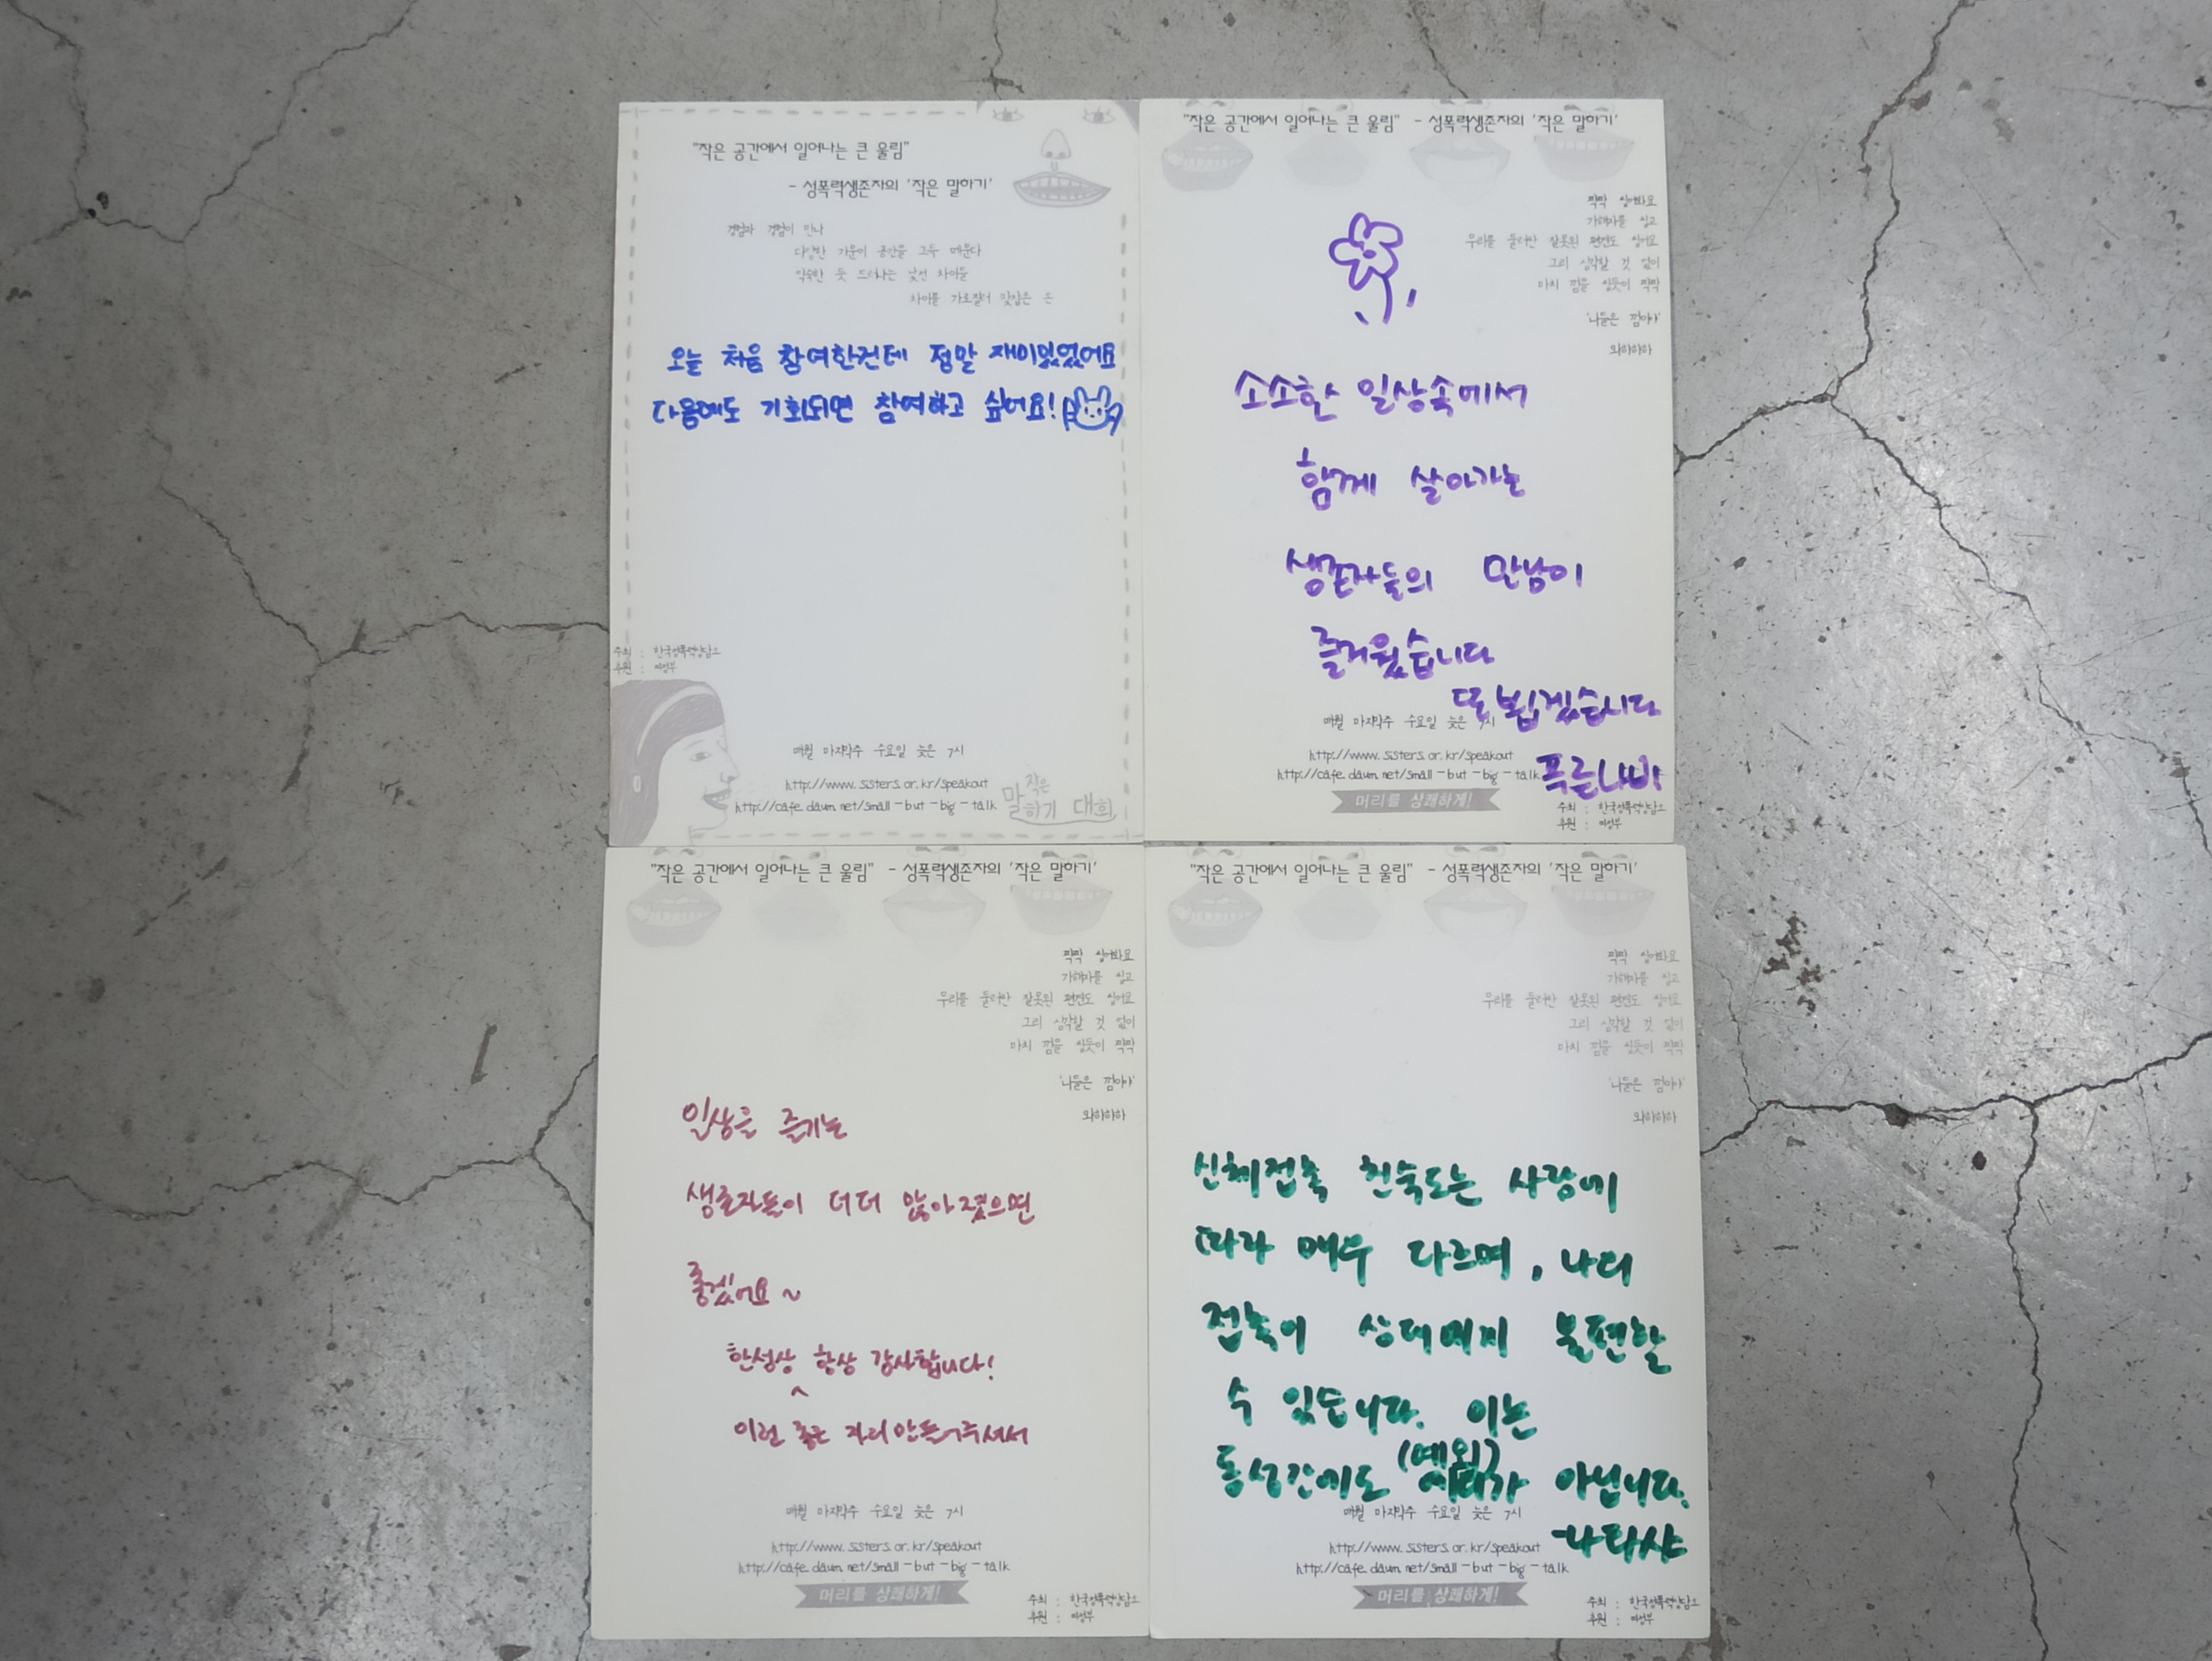 "작은 공간에서 일어나는 큰 울림"
- 성폭력생존자의 '작은 말하기'
경험과 경험이 만나
다양한 기운이 공간을 그득 메운다
익숙한 듯 드러나는 낯선 차이들
차이를 가로질러 맞잡은 손
오늘 처음 참여한건데 정말 재미있었어요
다음에도 기회되면 참여하고 싶어요!
주최 : 한국성폭력상담소
후원 : 여성부
매월 마지막주 수요일 늦은 7시
http://www.sisters.or.kr/speakout
http://cafe.daum.net/small-but-big-talk
작은
말하기 대회
"작은 공간에서 일어나는 큰 울림" - 성폭력생존자의 '작은 말하기'
짝짝 씹어봐요
가해자를 씹고
우리를 둘러싼 잘못된 편견도 씹어요
그리 심각할 것 없이
마치 껌을 씹듯이 짝짝
'니들은 껌이야'
와하하하
소소한 일상속에서
함께 살아가는
생존자들의 만남이
즐거웠습니다
또 뵙겠습니다
푸른나비
매월 마지막주 수요일 늦은 7시
http://www.sisters.or.kr/speakout
http://cafe.daum.net/small-but-big-talk
머리를 상쾌하게!
주최 : 한국성폭력상담소
후원 : 여성부
"작은 공간에서 일어나는 큰 울림" - 성폭력생존자의 '작은 말하기'
짝짝 씹어봐요
가해자를 씹고
우리를 둘러싼 잘못된 편견도 씹어요
그리 심각할 것 없이
마치 껌을 씹듯이 짝짝
'니들은 껌이야'
와하하하
일상을 즐기는
생존자들이 더더 많아졌으면
좋겠어요~
한성상 항상 감사합니다!
이런 좋은 자리 만들어주셔서
매월 마지막주 수요일 늦은 7시
http://www.sisters.or.kr/speakout
http://cafe.daum.net/small-but-big-talk
머리를 상쾌하게!
주최 : 한국성폭력상담소
후원 : 여성부
"작은 공간에서 일어나는 큰 울림" - 성폭력생존자의 '작은 말하기'
짝짝 씹어봐요
가해자를 씹고
우리를 둘러싼 잘못된 편견도 씹어요
그리 심각할 것 없이
마치 껌을 씹듯이 짝짝
'니들은 껌이야'
와하하하
신체접촉 친숙도는 사람에
따라 매우 다르며, 나의
접촉이 상대에게 불편할
수 있습니다. 이는
동성간에도 (예외)가 아닙니다.
-나타샤
매월 마지막주 수요일 늦은 7시
http://www.sisters.or.kr/speakout
http://cafe.daum.net/small-but-big-talk
머리를 상쾌하게!
주최 : 한국성폭력상담소
후원 : 여성부